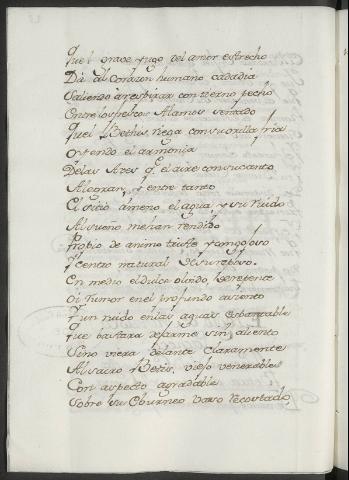 Quel grave yugo del amor estrecho
Da al corazon humano cadadia
Saliendo à respirar con tierno pecho
Entre los frescos Alamos sentado
Quel Bethis riega con su orilla fria
Oyendo el armonia
De las Aves q̃ el aire con su canto
Alegran, y entre tanto
El sitio ameno el agua, y su Ruido
Al sueño me han rendido
Propio de animo triste y
Y centro natural de su reposo.
En medio el dulce olvido, Derepente
Oi rumor en el profundo asiento
Y un ruido en las aguas espantable
Que bastara dejarme sin aliento
Sino viera delante claramente
Al sacro Betis, viejo venerable
Con aspecto agradable
Sobre su Eburneo vaso Recostado